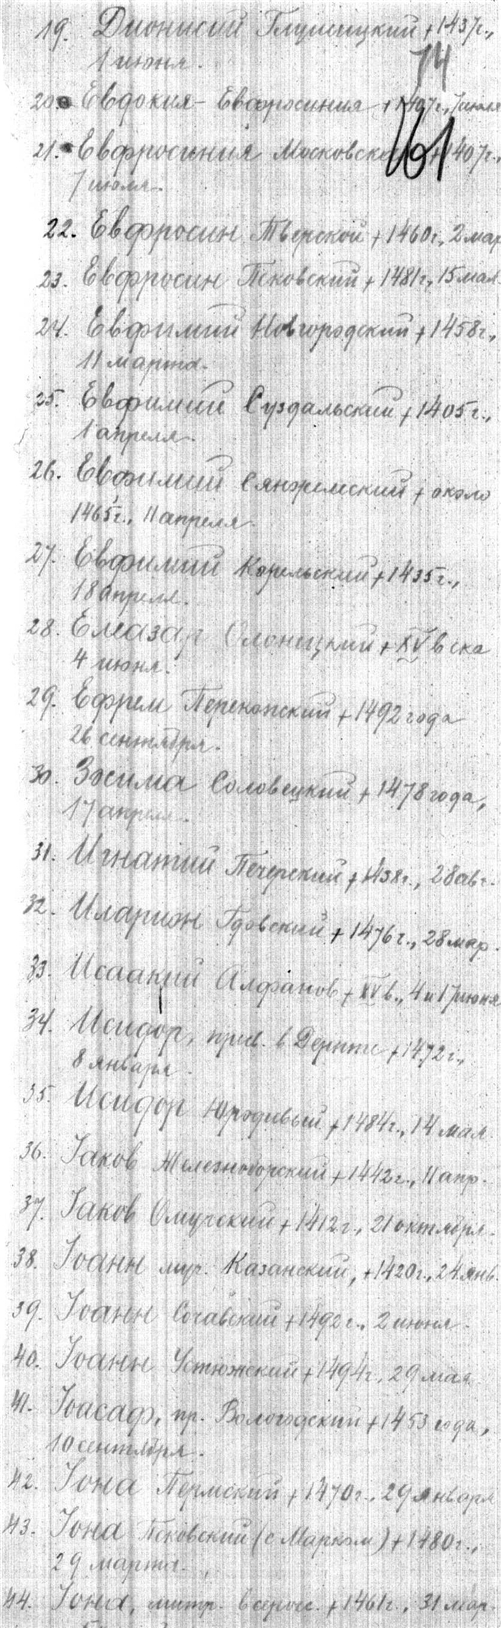 19. Дионисий Глушицкий + 1437г.,
1 июня.
74
20. Евдокия - Евфросиния + 1407г., 7 июля
61
21. Евфросиния Московская + 1407г.,
7 июля.
22. Евфросин Тверской + 1460г., 2 мар
23. Евфросин Псковский + 1481г, 15 мая
24. Евфимий Новгородский + 1458г.,
11 марта.
25. Евфимий Суздальский + 1405г.,
1 апреля.
26. Евфимий Сянжемский + около
1465г., 11 апреля.
27. Евфимий Корельский + 1435г.,
18 апреля.
28. Елеазар Олонецкий + XV века
4 июня.
29. Ефрем Перекопский + 1492 года
26 сентября.
30. Зосима Соловецкий + 1478 года,
17 апреля.
31. Игнатий Печерский + 1438г., 28 авг.
32. Иларион Гдовский + 1476г., 28 мар.
33. Исаакий Алфанов + XV в., 4 и 17 июня
34. Исидор, в Дерпте + 1472г.,
8 января.
35. Исидор Юродивый + 1484г., 14 мая.
36. Іаков Железноборский + 1442г., 11 апр.
37. Іаков Омучский + 1412г., 21 октября.
38. Іоанн муч. Казанский, + 1420г., 24 янв.
39. Іоанн Сочавский + 1492г., 2 июня.
40. Іоанн Устюжский + 1494г., 29 мая
41. Іоасаф, пр. Вологодский + 1453 года,
10 сентября.
42. Іона Пермский + 1470г., 29 января
43. Іона Псковский (с Марком) + 1480г.,
29 марта.
44. Іона, митр. всеросс. + 1461г., 31 мар.